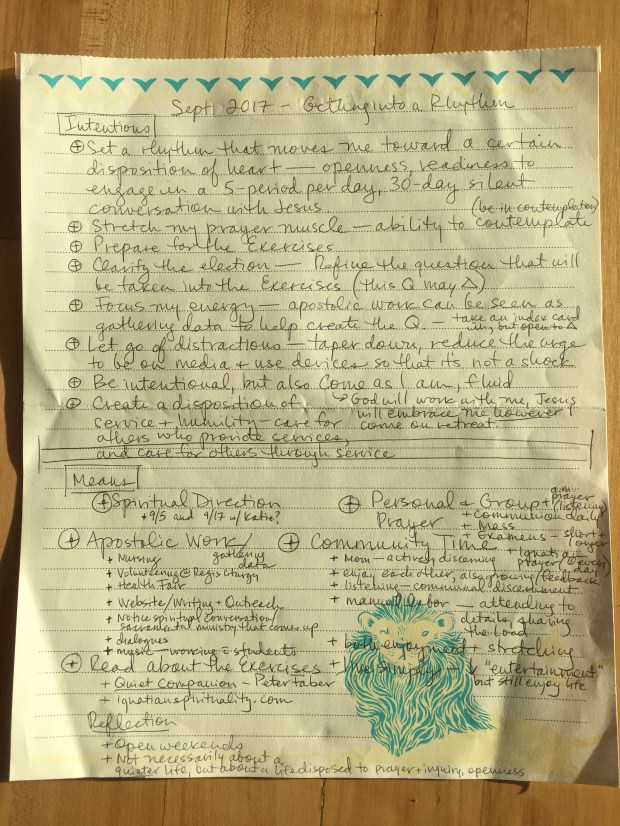 Sept. 2017 - Getting into a Rhythm
Intentions
⊕ Set a rhythm that moves me toward a certain
disposition of heart — openness, readiness to
engage in a 5-period per day, 30-day silent
conversation with Jesus. (be in contemplation)
⊕ Stretch my prayer muscle — ability to contemplate
⊕ Prepare for the Exercises
⊕ Clarify the election — Refine the question that will
be taken into the Exercises (this Q may △)
⊕ Focus my energy — apostolic work can be seen as
gathering data to help create the Q. — take an index card
but open to △
⊕ Let go of distractions — taper down, reduce the urge
to be on media + use devices so that it's not a shock
⊕ Be intentional, but also come as I am, fluid
⊕ Create a disposition of
↳ God will work with me, Jesus
service + humility - care for
will embrace me however I
others who provide services,
come on retreat.
and care for others through service
Means
⊕ Spiritual Direction
+ 9/5 and 9/17 w/ Katie?
⊕ Personal + Group
Prayer
+ a.m. prayer
(listening)
+ Communion daily
+ Mass
+ Examens - short +
longer
+ Ignatian
prayer
⊕ Apostolic Work
gathering
data
+ Nursing
+ Volunteering @ Regis Clergy
+ Health Fair
+ Website/Writing + Outreach
+ Notice spiritual conversation/
Sacramental ministry that comes up
+ dialogues
+ music - working c̄ students
⊕ Community Time
+ Mom - actively discerning
+ enjoy each other, also growing/feedback
+ listening - communal discernment
+ manual labor — attending to
details, sharing
the load
+ both enjoyment + stretching
+ live simply - ↓ "entertainment"
but still enjoy life
⊕ Read about the Exercises
+ Quiet Companion - Peter Faber
+ ignatianspirituality.com
Reflection
+ Open weekends
+ Not necessarily about a
quieter life, but about a life disposed to prayer + inquiry, openness